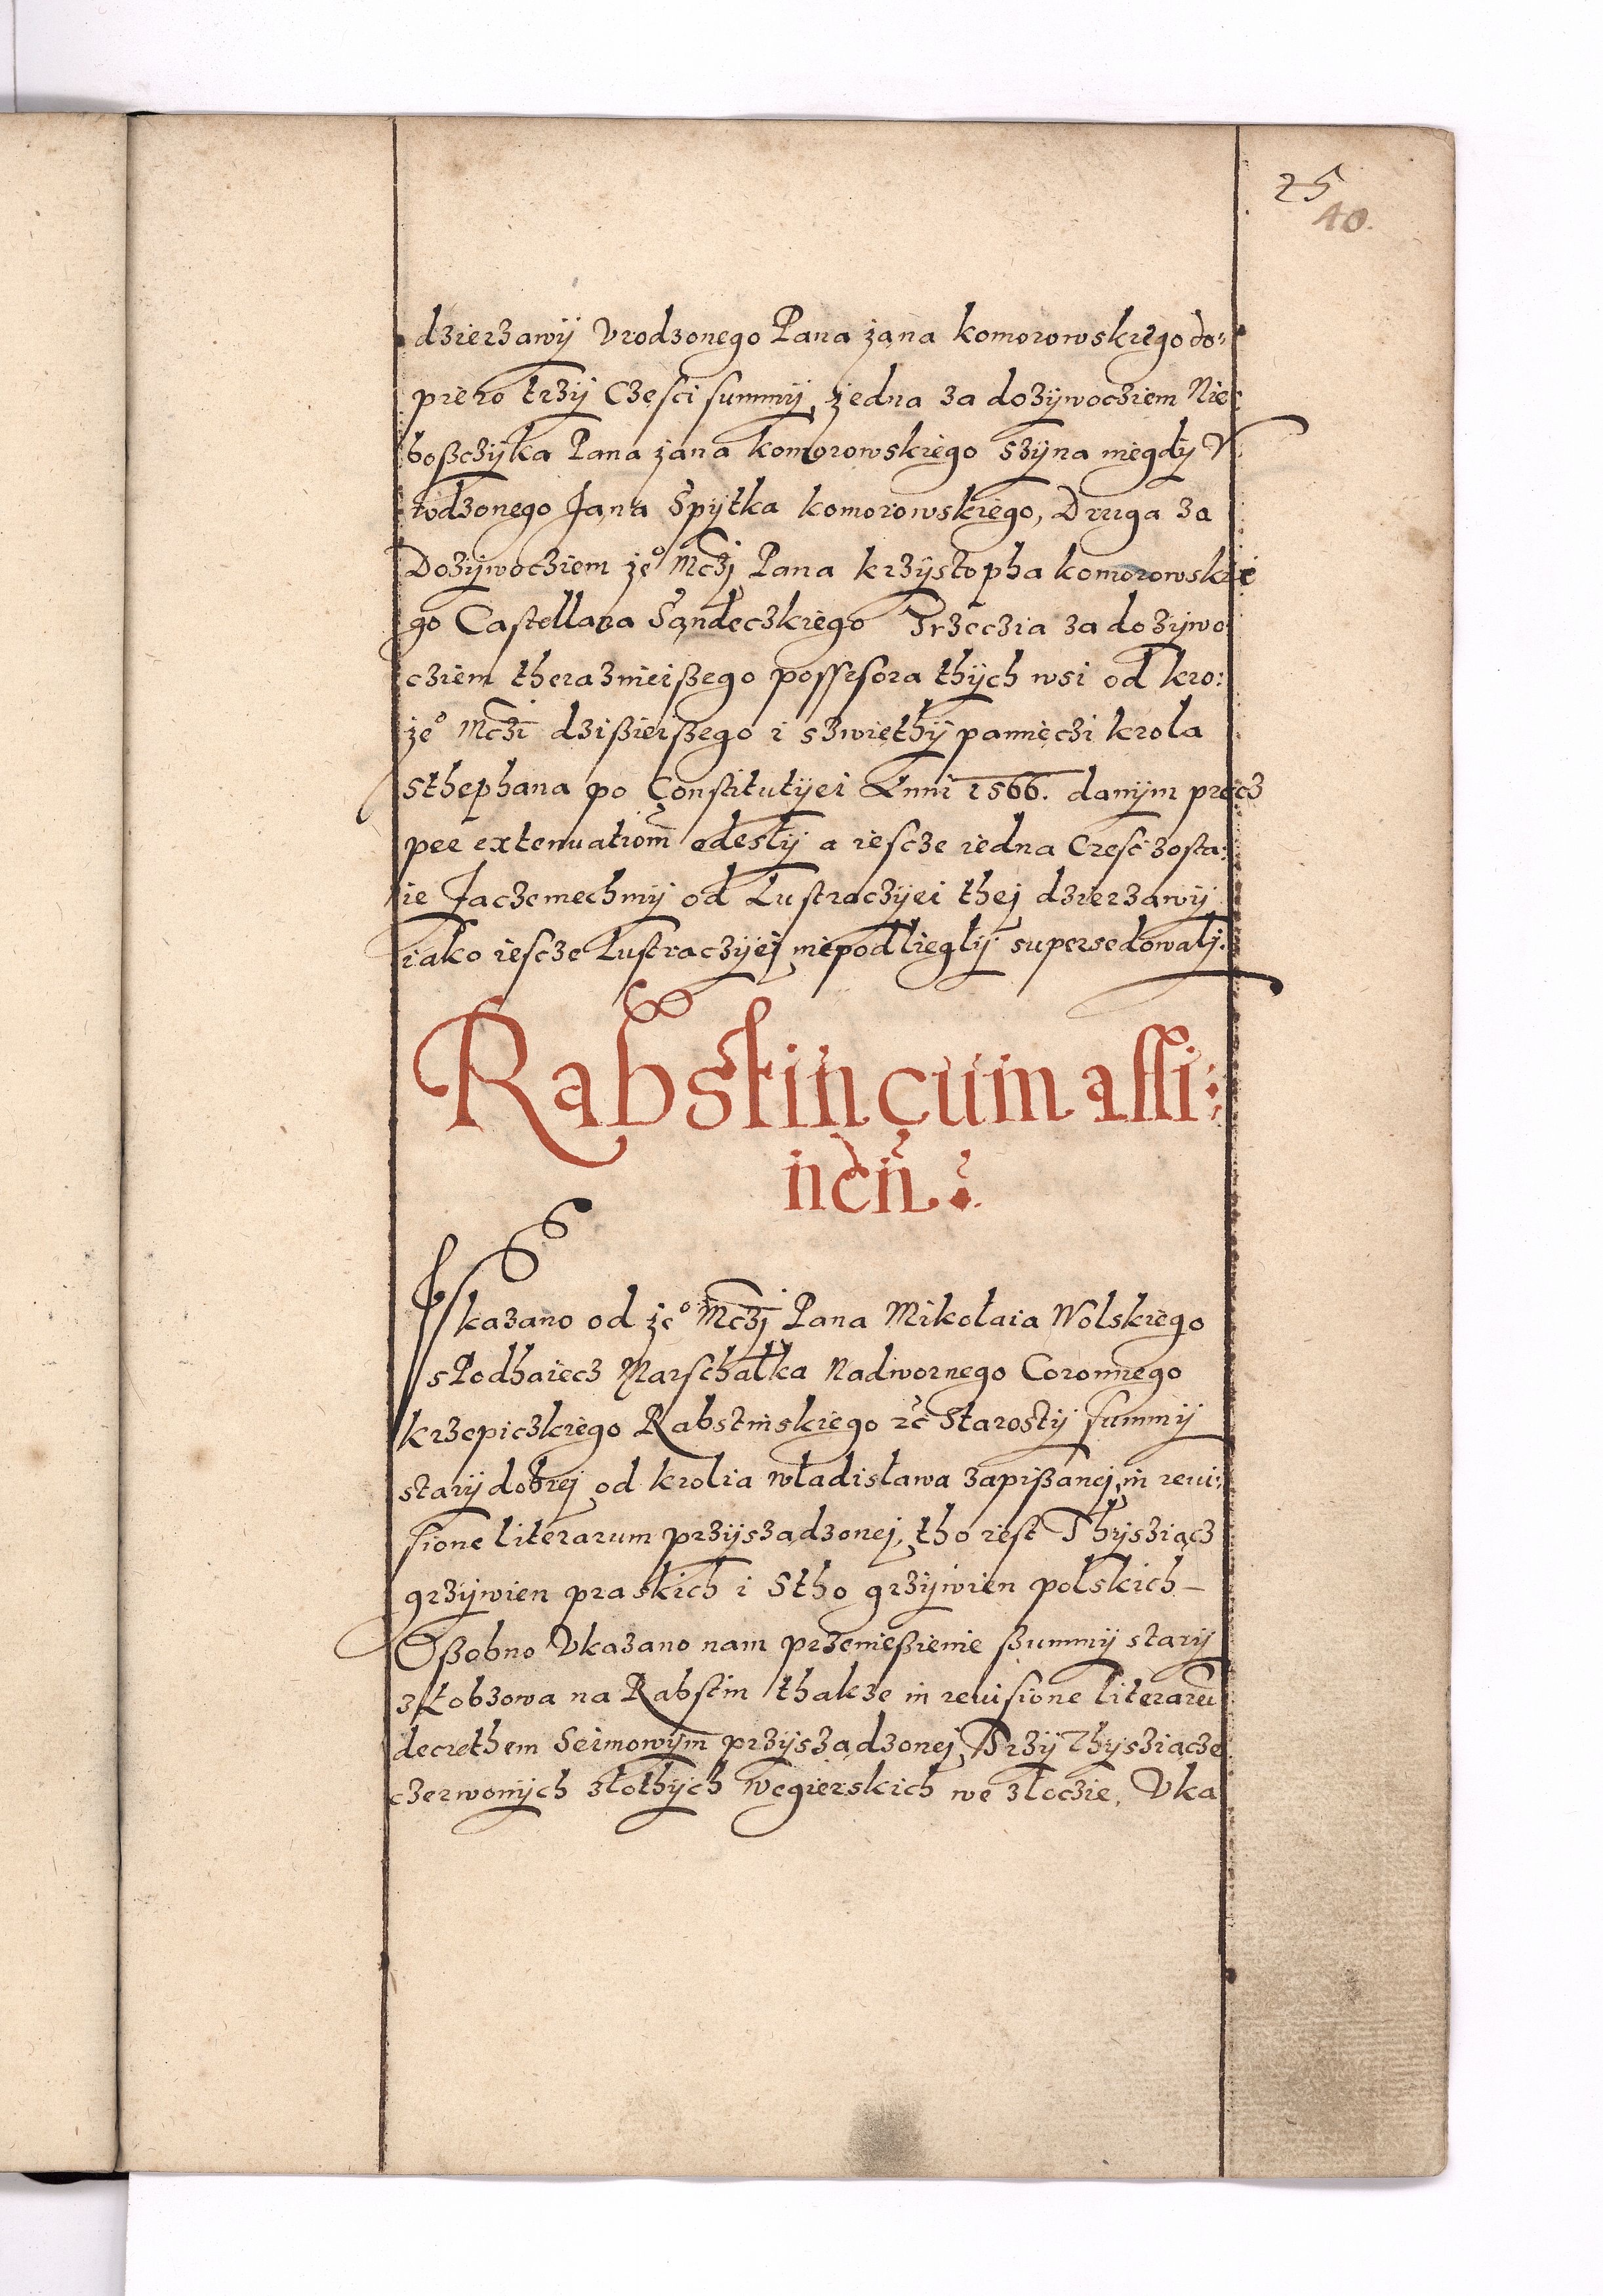 25
40.
dzierzawÿ Vrodzonego Pana jana komorowskiego do:
piero trzÿ Częsci summÿ, jedna za dozÿwoczięm Nie:
boßczÿka Pana jana komorowskiego szÿna niegdÿ V
rodzonego Jana Spÿtka komorowskiego, Druga za
Dozÿwocziem jeº Mczj Pana krzÿstopha komorowskie
go Castellana Sandeczkiego Trzeczia za dozÿwo
cziem therazmeißego possesora thÿch wsi od kro:
jeº Mczi dzißieißego i szwiethÿ pamięczi krola
Sthephana po Constitutÿei Anni 1566. danÿm precz
per extenuationem odeslÿ a iescze iedna Cześć zosta:
ie Jaczemechmÿ od Lustraczÿei thej dzierzawÿ
iako iescze Lustraczÿej niepodlieglÿ supersedowalj.
Rabstin cum atti:
nen.
Vkazano od jeº Mczj Pana Mikołaia Wolskiego
sPodhaiecz Marschałka Nadwornego Coronnego
krzepiczkiego Rabstinskiego etc Starostÿ summÿ
starÿ dobrej od krolia władisława zapißanej, in revi:
sione literarum przÿsządzonej, tho iest Thÿsziącz
grzÿwien praskich i Stho grzÿwien polskich –
Oßobno Vkazano nam przenießienie ßummÿ starÿ
z Łobzowa na Rabstin thakze in revisione literarū
decrethem Seimowÿm przÿsządzonej, Trzÿ Thÿsziącze
czerwonÿch złothÿch Węgierskich we złoczie, Vka